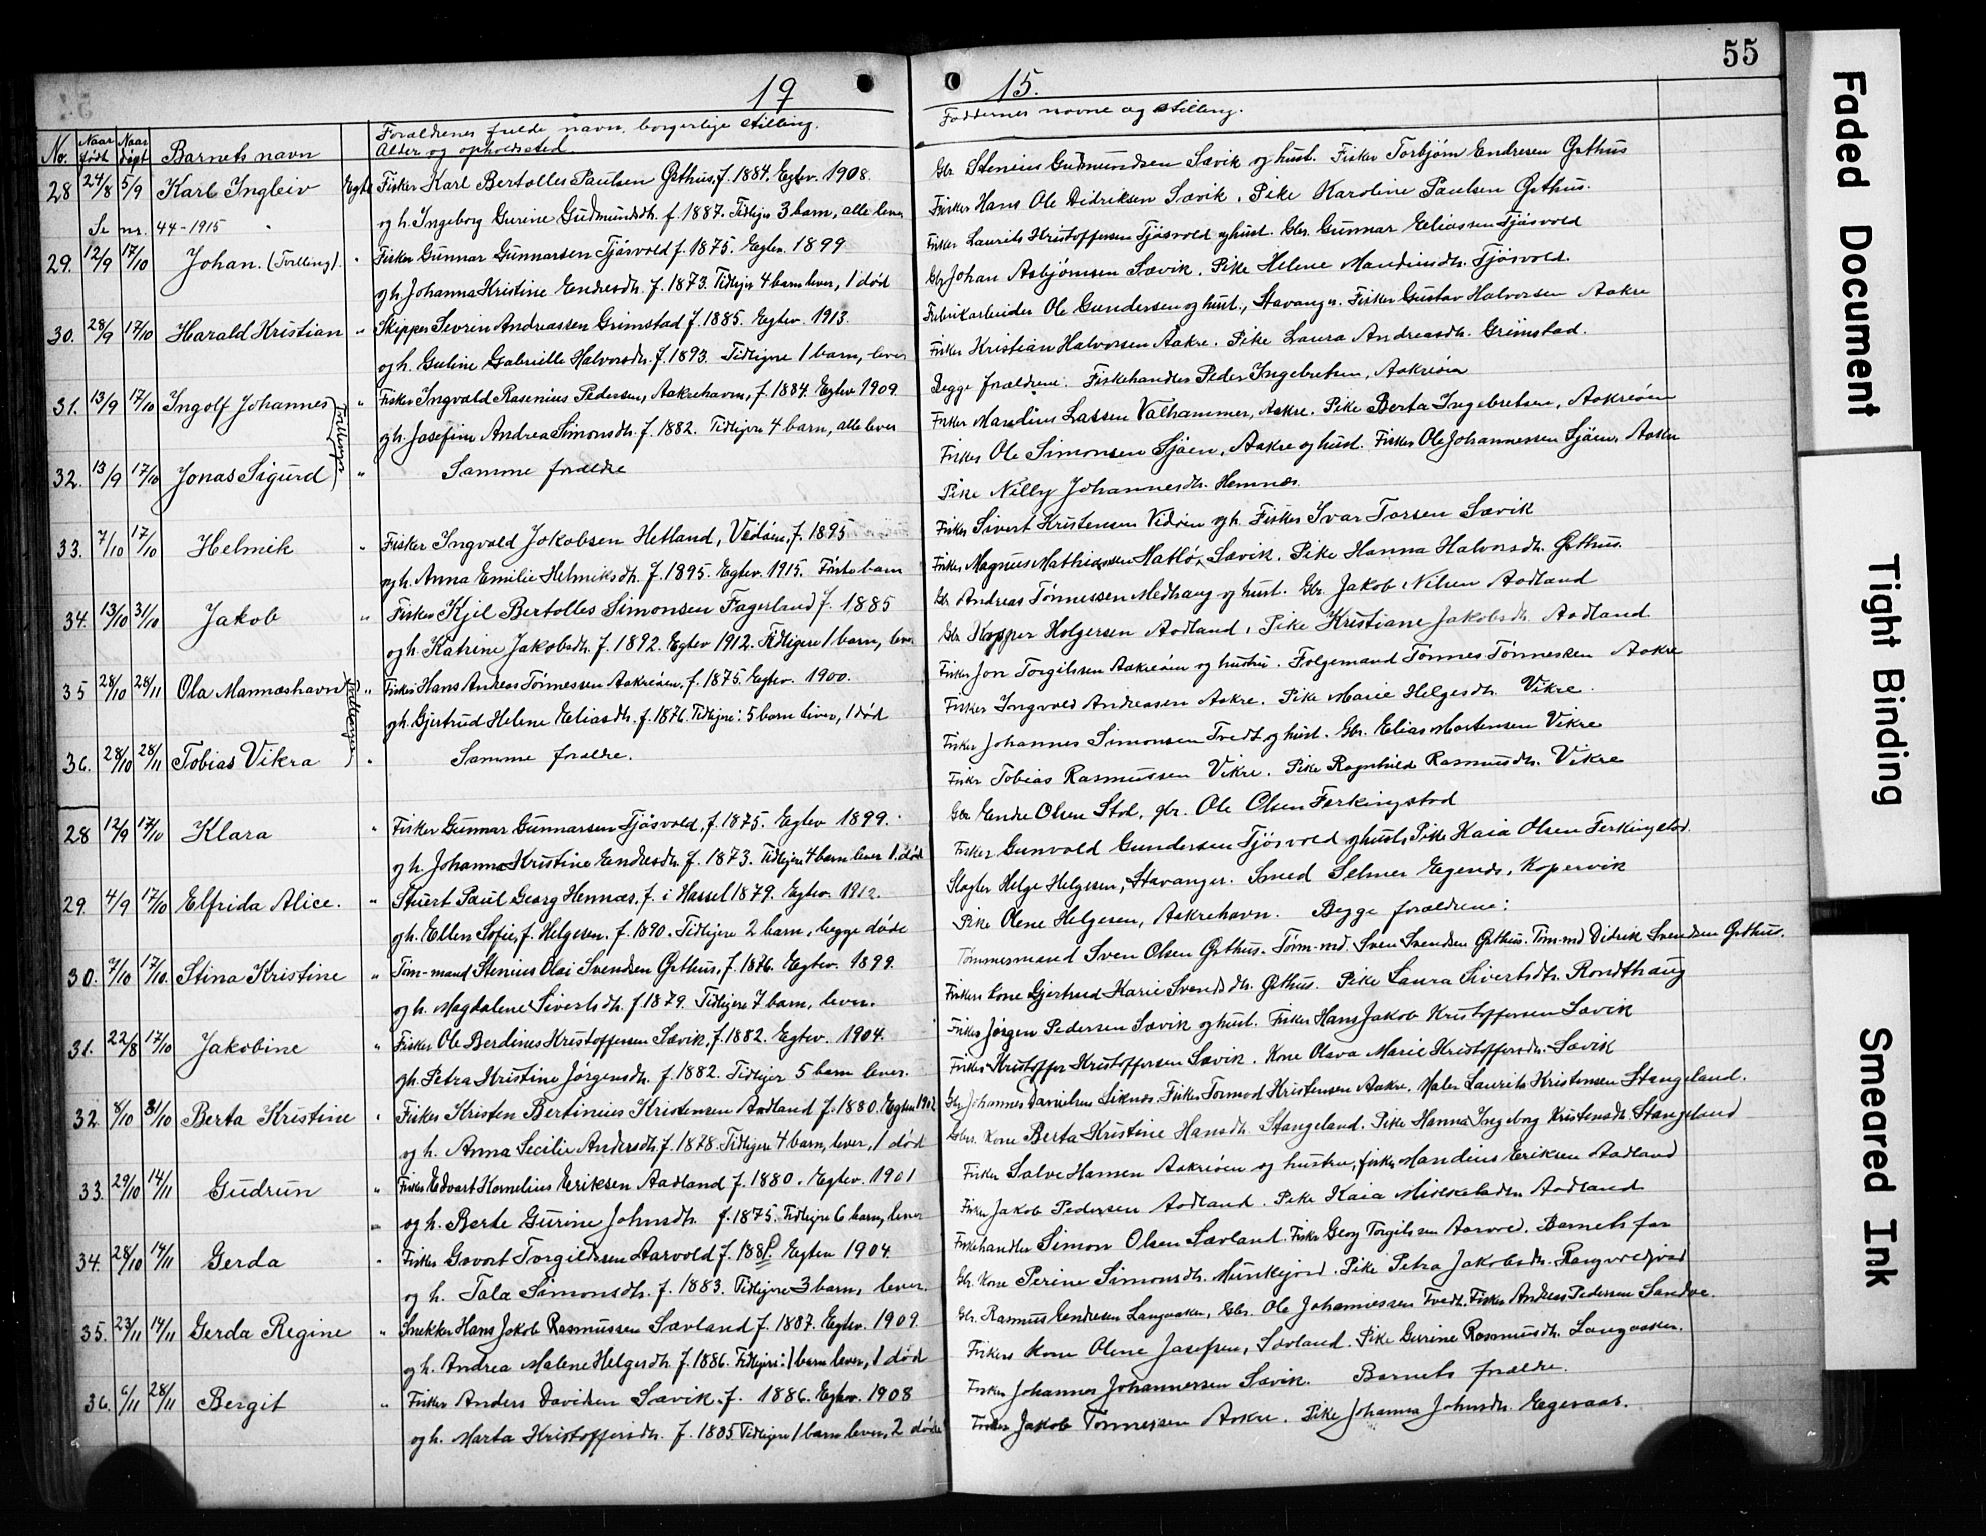 55
19 15.
No. Naar født Naar døpt Barnets navn Forældrenes fulde navn, borgerlige stilling. Alder og opholdssted Faddernes navne og stilling.
28 24/8 5/9 Karl Ingleiv Egte Fisker Karl Bertolles Paulsen Grthus, f. 1884. Egtev. 1908. Gbr. Stenius Gudmundsen Sævik og hust. Fisker Torbjørn Endresen Grthus
Se nr. 44-1915 og h. Ingeborg Gurine Gudmundsdtr. f. 1887. Tidligere 3 barn, alle lever Fisker Hans Ole Didriksen Sævik. Pike Karoline Paulsen Grthus.
29. 12/9 17/10 Johan. (Tvilling). " Fisker Gunnar Gunnarsen Tjøsvold f. 1875. Egtev. 1899 Fisker Laurits Kristoffersen Tjøsvold og hust. Gbr. Gunnar Eliassen Tjøsvold
og h. Johanna Kristine Endresdtr. f. 1873. Tidligere 4 barn lever, 1 død Gbr Johan Asbjørnsen Sævik. Pike Helene Mandiusdtr. Tjøsvold.
30. 28/9 17/10 Harald Kristian " Skipper Sevrin Andreassen Grimstad f. 1885. Egtev. 1913. Fabrikarbeider Ole Gundersen og hust., Stavanger. Fisker Gustav Halvorsen Aakre
og h. Guline Gabrielle Halvorsdtr. f. 1893. Tidligere 1 barn, lever Fisker Kristian Halvorsen Aakre. Pike Laura Andreasdtr. Grimstad.
31. 13/9 17/10 Ingolf Johannes } Tvillinger " Fisker Ingvald Rasenius Pedersen, Aakrehavn, f. 1884. Egtev 1909. Begge forældrene. Fiskehandler Peder Ingebretsen, Aakreøen
og h. Josefine Andrea Simonsdtr. f. 1882. Tidligere 4 barn, alle lever Fisker Mandius Lassen Valhammer, Aakre. Pike Berta Ingebretsen, Aakreøen
32. 13/9 17/10 Jonas Sigurd " Samme forældre Fisker Ole Simonsen Sjøen, Aakre og hust. Fisker Ole Johannessen Sjøen, Aakre
Pike Nilly Johannesdtr. Hemnæs.
33. 7/10 17/10 Helmik " Fisker Ingvald Jakobsen Hetland, Vedøen, f. 1895 Fisker Sivert Kristensen Vidøen og h. Fisker Ivar Torsen Sævik
og h. Anna Emilie Helmiksdtr. f. 1895. Egtev. 1915. Første barn Fisker Magnus Mathiassen Matlø, Sævik. Pike Hanna Halvorsdtr. Grthus.
34. 13/10 31/10 Jakob " Fisker Kjel Bertolles Simonsen Fagerland f. 1885 Gbr Andreas Tønnessen Medhaug og hust. Gbr. Jakob Nilsen Aadland
og h. Katrine Jakobsdtr. f. 1892. Egtev 1912. Tidligere 1 barn, lever Gbr. Kasper Holgersen Aadland, Pike Kristiane Jakobsdtr. Aadland
35 28/10 28/11 Ola Mannæshavn } Tvillinger " Fisker Hans Andreas Tønnessen Aakreøen, f. 1875. Egtev. 1900. Fisker Jon Torgilssen Aakreøen og hustru. Folgemand Tønnes Tønnessen Aakre
og h. Gjertrud Helene Eliasdtr. f. 1876. Tidligere: 5 barn lever, 1 død Fisker Ingvald Andreasen Aakre. Pike Marie Helgesdtr. Vikre.
36. 28/10 28/11 Tobias Vikra " Samme forældre. Fisker Johannes Simonsen Tvedt og hust. Gbr. Elias Mortensen Vikre
Fisker Tobias Rasmussen Vikre. Pike Ragnhild Rasmusdtr. Vikre
28 12/9 17/10 Klara " Fisker Gunnar Gunnarsen Tjøsvold, f. 1875. Egtev 1899. Gbr Endre Olsen Stol, gbr. Ole Olsen Ferkingstad
og h. Johanna Kristine Endresdtr. f. 1873. Tidligere 4 barn lever 1 død Fisker Gunvald Gundersen Tjøsvold og hust, Pike Kaia Olsen Ferkingstad.
29. 4/9 17/10 Elfrida Alice. " Stuert Paul Georg Hennæs, f. i Hassel 1879. Egtev. 1912. Slagter Helge Helgesen, Stavanger. Smed Selmer Egends, Kopervik
og h. Ellen Sofie, f. Helgesen. f. 1890. Tidligere 2 barn, begge døde Pike Olene Helgesen, Aakrehavn. Begge forældrene.
30. 7/10 17/10. Stina Kristine " Tøm-mand Stenius Olai Svendsen Grthus, f. 1876. Egtev. 1899. Tømmermand Sven Olsen Grthus. Tøm-md. Sven Svendsen Grthus. Tøm-md Didrik Svendsen Grthus.
og h. Magdalene Sivertsdtr. f 1879. Tidligere 7 barn, lever. Fiskers kone Gjertrud Karie Svendsdtr. Grthus. Pike Laura Sivertsdtr. Rondthaug
31. 22/8 17/10 Jakobine " Fisker Ole Berdines Kristoffersen Sævik, f. 1882. Egtev. 1904. Fisker Jørgen Pedersen Sævik og hust. Fisker Hans Jakob Kristoffersen Sævik
og h. Petra Kristine Jørgensdtr. f. 1882. Tidligere 5 barn lever. Fisker Kristoffer Kristoffersen Sævik. Kone Olava Marie Kristoffersdtr. Sævik
32. 8/10 31/10 Berta Kristine " Fisker Kristen Bertinius Kristensen Aadland f. 1880. Egtev 1902 Gbr Johannes Danielsen Liknæs. Fisker Tormod Kristensen Aakre. Maler Laurits Kristensen Stangeland.
og h. Anna Secilie Andersdtr. f. 1878. Tidligere 4 barn, lever, 1 død Gbrs. kone Berta Kristine Hansdtr. Stangeland. Pike Hanna Ingeborg Kristensdtr. Stangeland
33. 29/10 14/11 Gudrun " Fisker Edvart Kornelius Eriksen Aadland f. 1880. Egtev. 1901 Fisker Salve Hansen Aakreøen og hustru, fisker Mandius Eriksen Aadland
og h. Berte Gurine Johnsdtr. f. 1875. Tidligere 6 barn, lever Fisker Jakob Pedersen Aadland. Pike Kaia Mikkelsdtr. Aadland
34. 28/10 14/11 Gerda " Fisker Govart Torgilssen Aarvold f. 1881. Egtev 1904 Fiskehandler Simon Olsen Sævland. Fisker Georg Torgilsen Aarvold. Barnets far
og h. Tala Simonsdtr. f. 1883. Tidligere 3 barn, lever. Gbr. kone Perine Simonsdtr. Munkejord. Pike Petra Jakobsdtr. Rangvoldjord
35. 23/11 14/11 Gerda Regine " Snekker Hans Jakob Rasmussen Sævland f. 1887. Egtev. 1909. Gbr. Rasmus Endresen Langaaker, Gbr. Ole Johannessen Tvedt. Fisker Andreas Pedersen Sandve.
og h. Andrea Malene Helgesdtr. f. 1886. Tidligere: 1 barn lever, 1 død Fiskers kone Olene Josefsen, Sævland. Pike Gurine Rasmusdtr. Langaaker.
36. 6/11 28/11 Bergit " Fisker Anders Davidsen Sævik. f. 1886. Egtev. 1908 Fisker Johannes Johannessen Sævik. Barnets forældre.
og h. Marta Kristoffersdtr. f. 1885 Tidligere 1 barn lever, 2 døde Fisker Jakob Tønnessen Aakre. Pike Johanna Johnsdtr. Egevaar.
Faded Document
Tight Binding
Smeared Ink